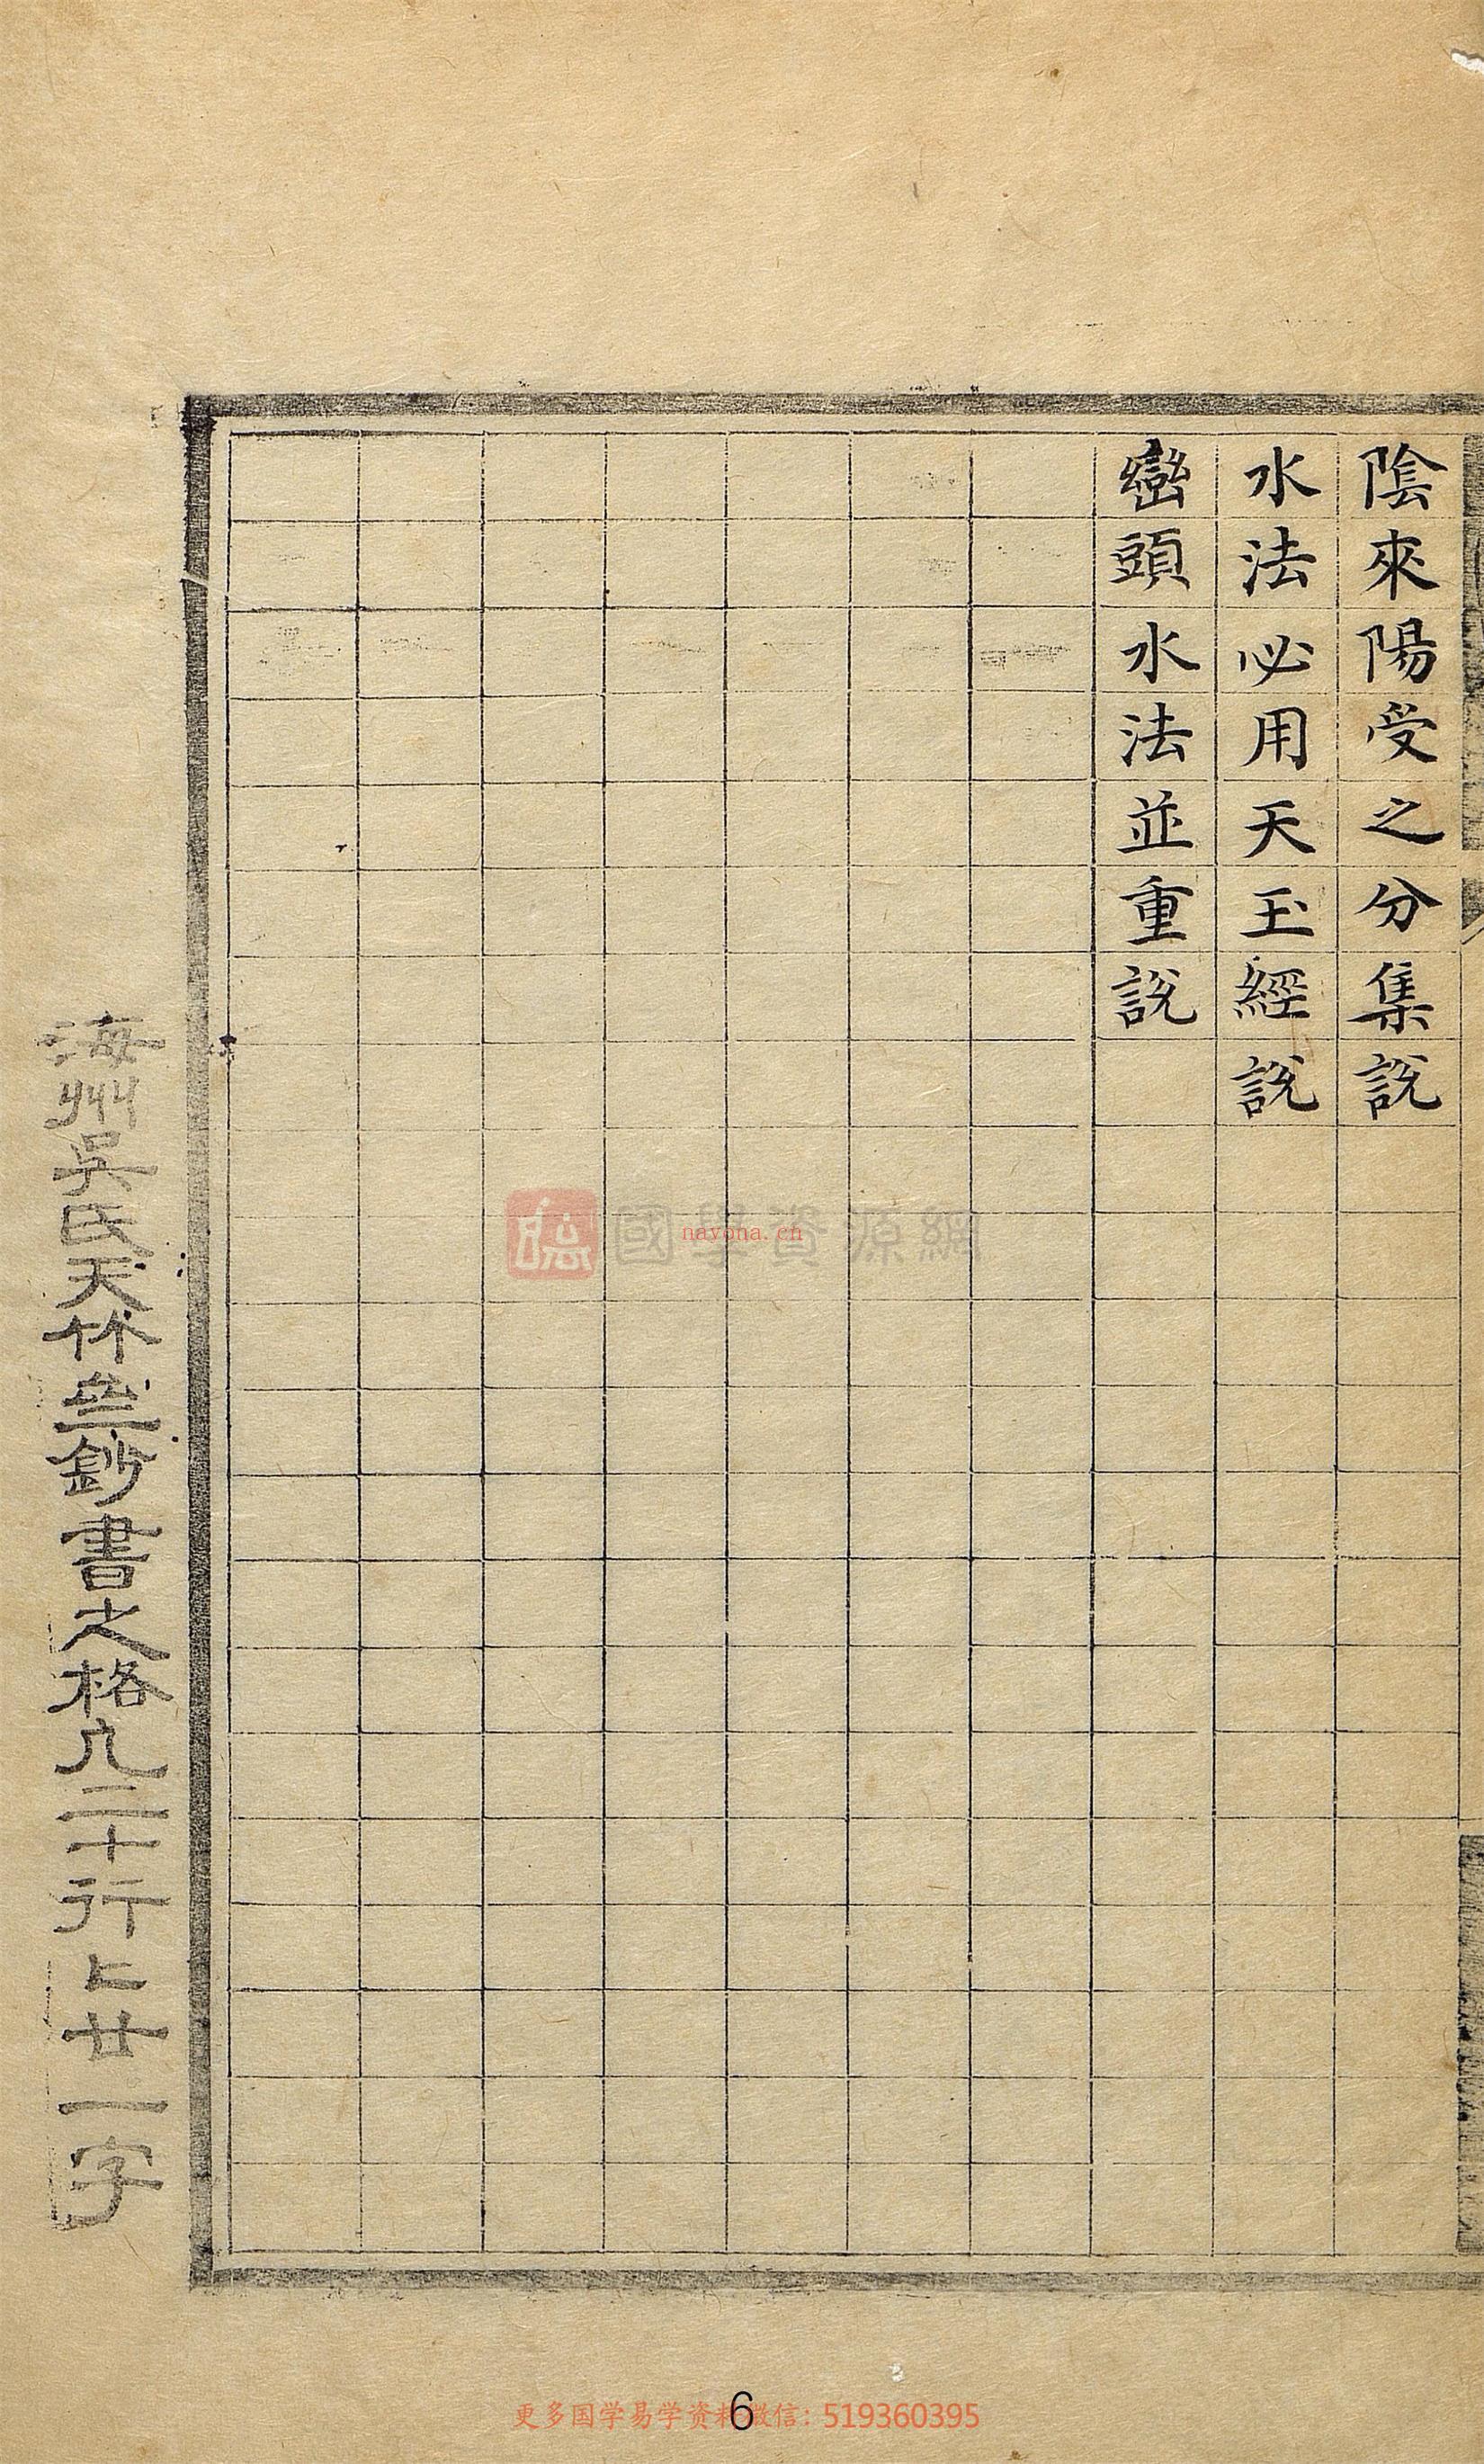 陰來陽受之分集說
水法必用天玉經說
巒頭水法並重說
海州吳氏天
鈔書之格凡二十行上廿一字
國學資源網
nayona.cn
6
更多国学易学资料微信：519360395